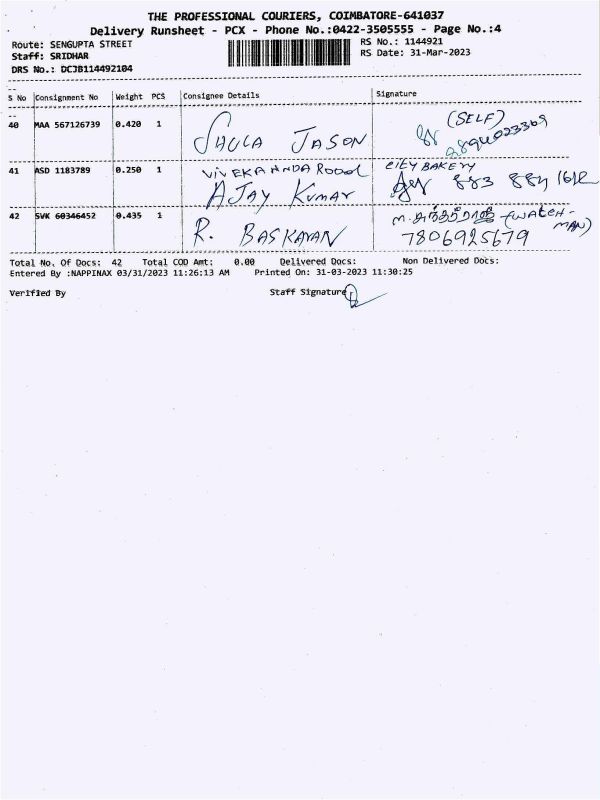 THE PROFESSIONAL COURIERS, COIMBATORE-641037
Delivery Runsheet - PCX - Phone No.:0422-3505555 - Page No.:4
Route: SENGUPTA STREET
Staff: SRIDHAR
DRS No.: DCJB114492104
RS No.: 1144921
RS Date: 31-Mar-2023
S No Consignment No Weight PCS Consignee Details Signature
40 MAA 567126739 0.420 1 JASON (SELF)
41 ASD 1183789 0.250 1 AJAY KUMAR CITY BAKERY
42 SVK 60346452 0.435 1 R. BASKARAN
7806925679
Total No. Of Docs: 42 Total COD Amt: 0.00 Delivered Docs: Non Delivered Docs:
Entered By :NAPPINAX 03/31/2023 11:26:13 AM Printed On: 31-03-2023 11:30:25
Verified By Staff Signature